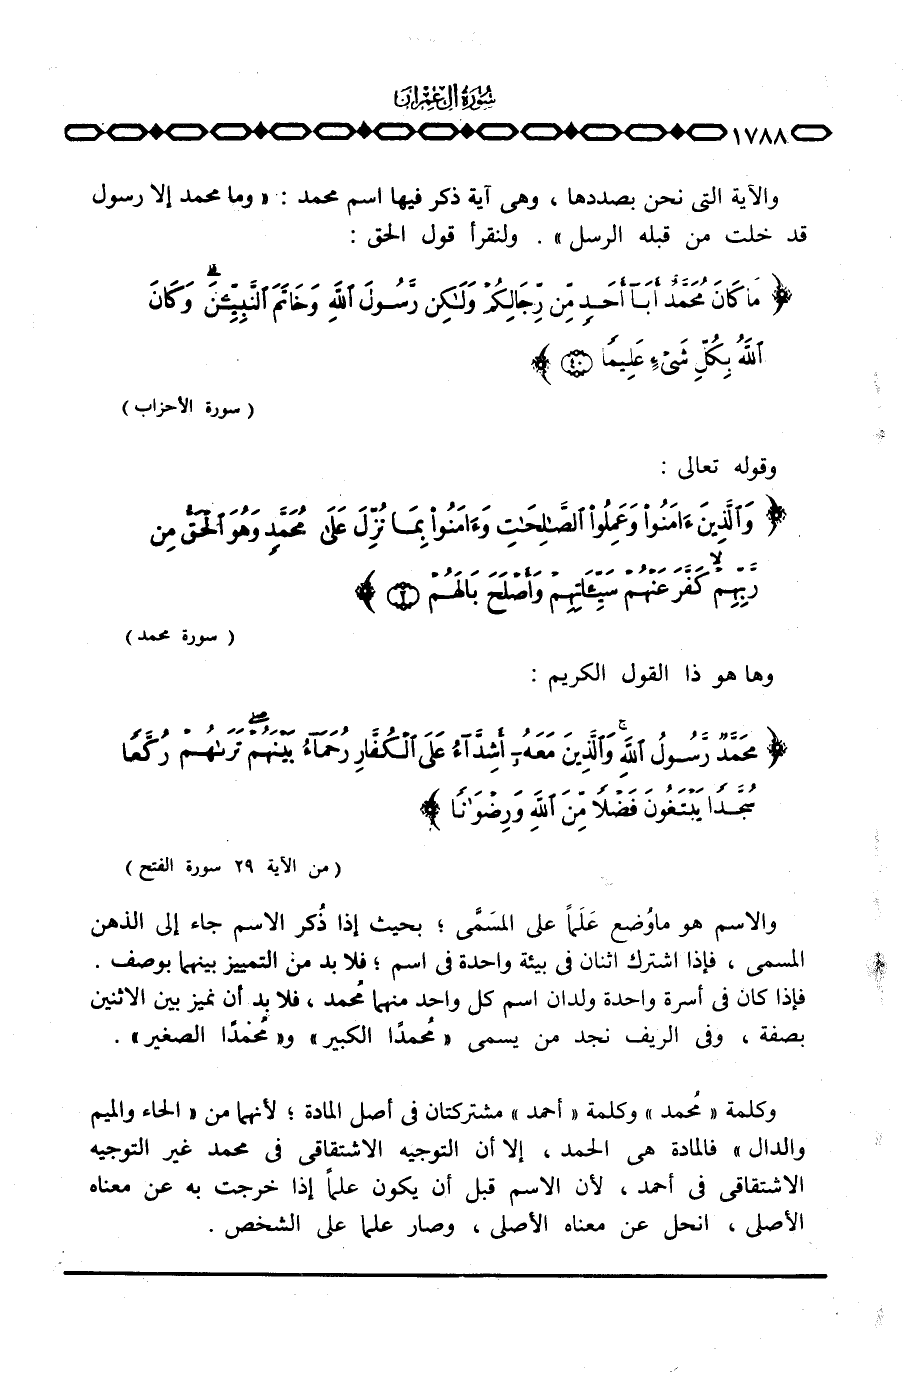 سُورَةُ آلِ عِمْرَان
١٧٨٨
والآية التى نحن بصددها ، وهى آية ذكر فيها اسم محمد : « وما محمد إلا رسول
قد خلت من قبله الرسل » . ولنقرأ قول الحق :
﴿ مَّا كَانَ مُحَمَّدٌ أَبَآ أَحَدٍ مِّن رِّجَالِكُمْ وَلَٰكِن رَّسُولَ ٱللَّهِ وَخَاتَمَ ٱلنَّبِيِّـۧنَ ۗ وَكَانَ
ٱللَّهُ بِكُلِّ شَىْءٍ عَلِيمًا ٤٠ ﴾
( سورة الأحزاب )
وقوله تعالى :
﴿ وَٱلَّذِينَ ءَامَنُوا۟ وَعَمِلُوا۟ ٱلصَّٰلِحَٰتِ وَءَامَنُوا۟ بِمَا نُزِّلَ عَلَىٰ مُحَمَّدٍ وَهُوَ ٱلْحَقُّ مِن
رَّبِّهِمْ ۙ كَفَّرَ عَنْهُمْ سَيِّـَٔاتِهِمْ وَأَصْلَحَ بَالَهُمْ ٢ ﴾
( سورة محمد )
وها هو ذا القول الكريم :
﴿ مُّحَمَّدٌ رَّسُولُ ٱللَّهِ ۚ وَٱلَّذِينَ مَعَهُۥٓ أَشِدَّآءُ عَلَى ٱلْكُفَّارِ رُحَمَآءُ بَيْنَهُمْ ۖ تَرَىٰهُمْ رُكَّعًا
سُجَّدًا يَبْتَغُونَ فَضْلًا مِّنَ ٱللَّهِ وَرِضْوَٰنًا ﴾
( من الآية ٢٩ سورة الفتح )
والاسم هو ماوُضع عَلَماً على المسَمَّى ؛ بحيث إذا ذُكر الاسم جاء إلى الذهن
المسمى ، فإذا اشترك اثنان فى بيئة واحدة فى اسم ؛ فلا بد من التمييز بينهما بوصف .
فإذا كان فى أسرة واحدة ولدان اسم كل واحد منهما مُحمد ، فلا بد أن نميز بين الاثنين
بصفة ، وفى الريف نجد من يسمى « مُحمدًا الكبير » و« مُحمْدًا الصغير » .
وكلمة « مُحمد » وكلمة « أحمد » مشتركتان فى أصل المادة ؛ لأنهما من « الحاء والميم
والدال » فالمادة هى الحمد ، إلا أن التوجيه الاشتقاقى فى محمد غير التوجيه
الاشتقاقى فى أحمد ، لأن الاسم قبل أن يكون علماً إذا خرجت به عن معناه
الأصلى ، انحل عن معناه الأصلى ، وصار علما على الشخص .